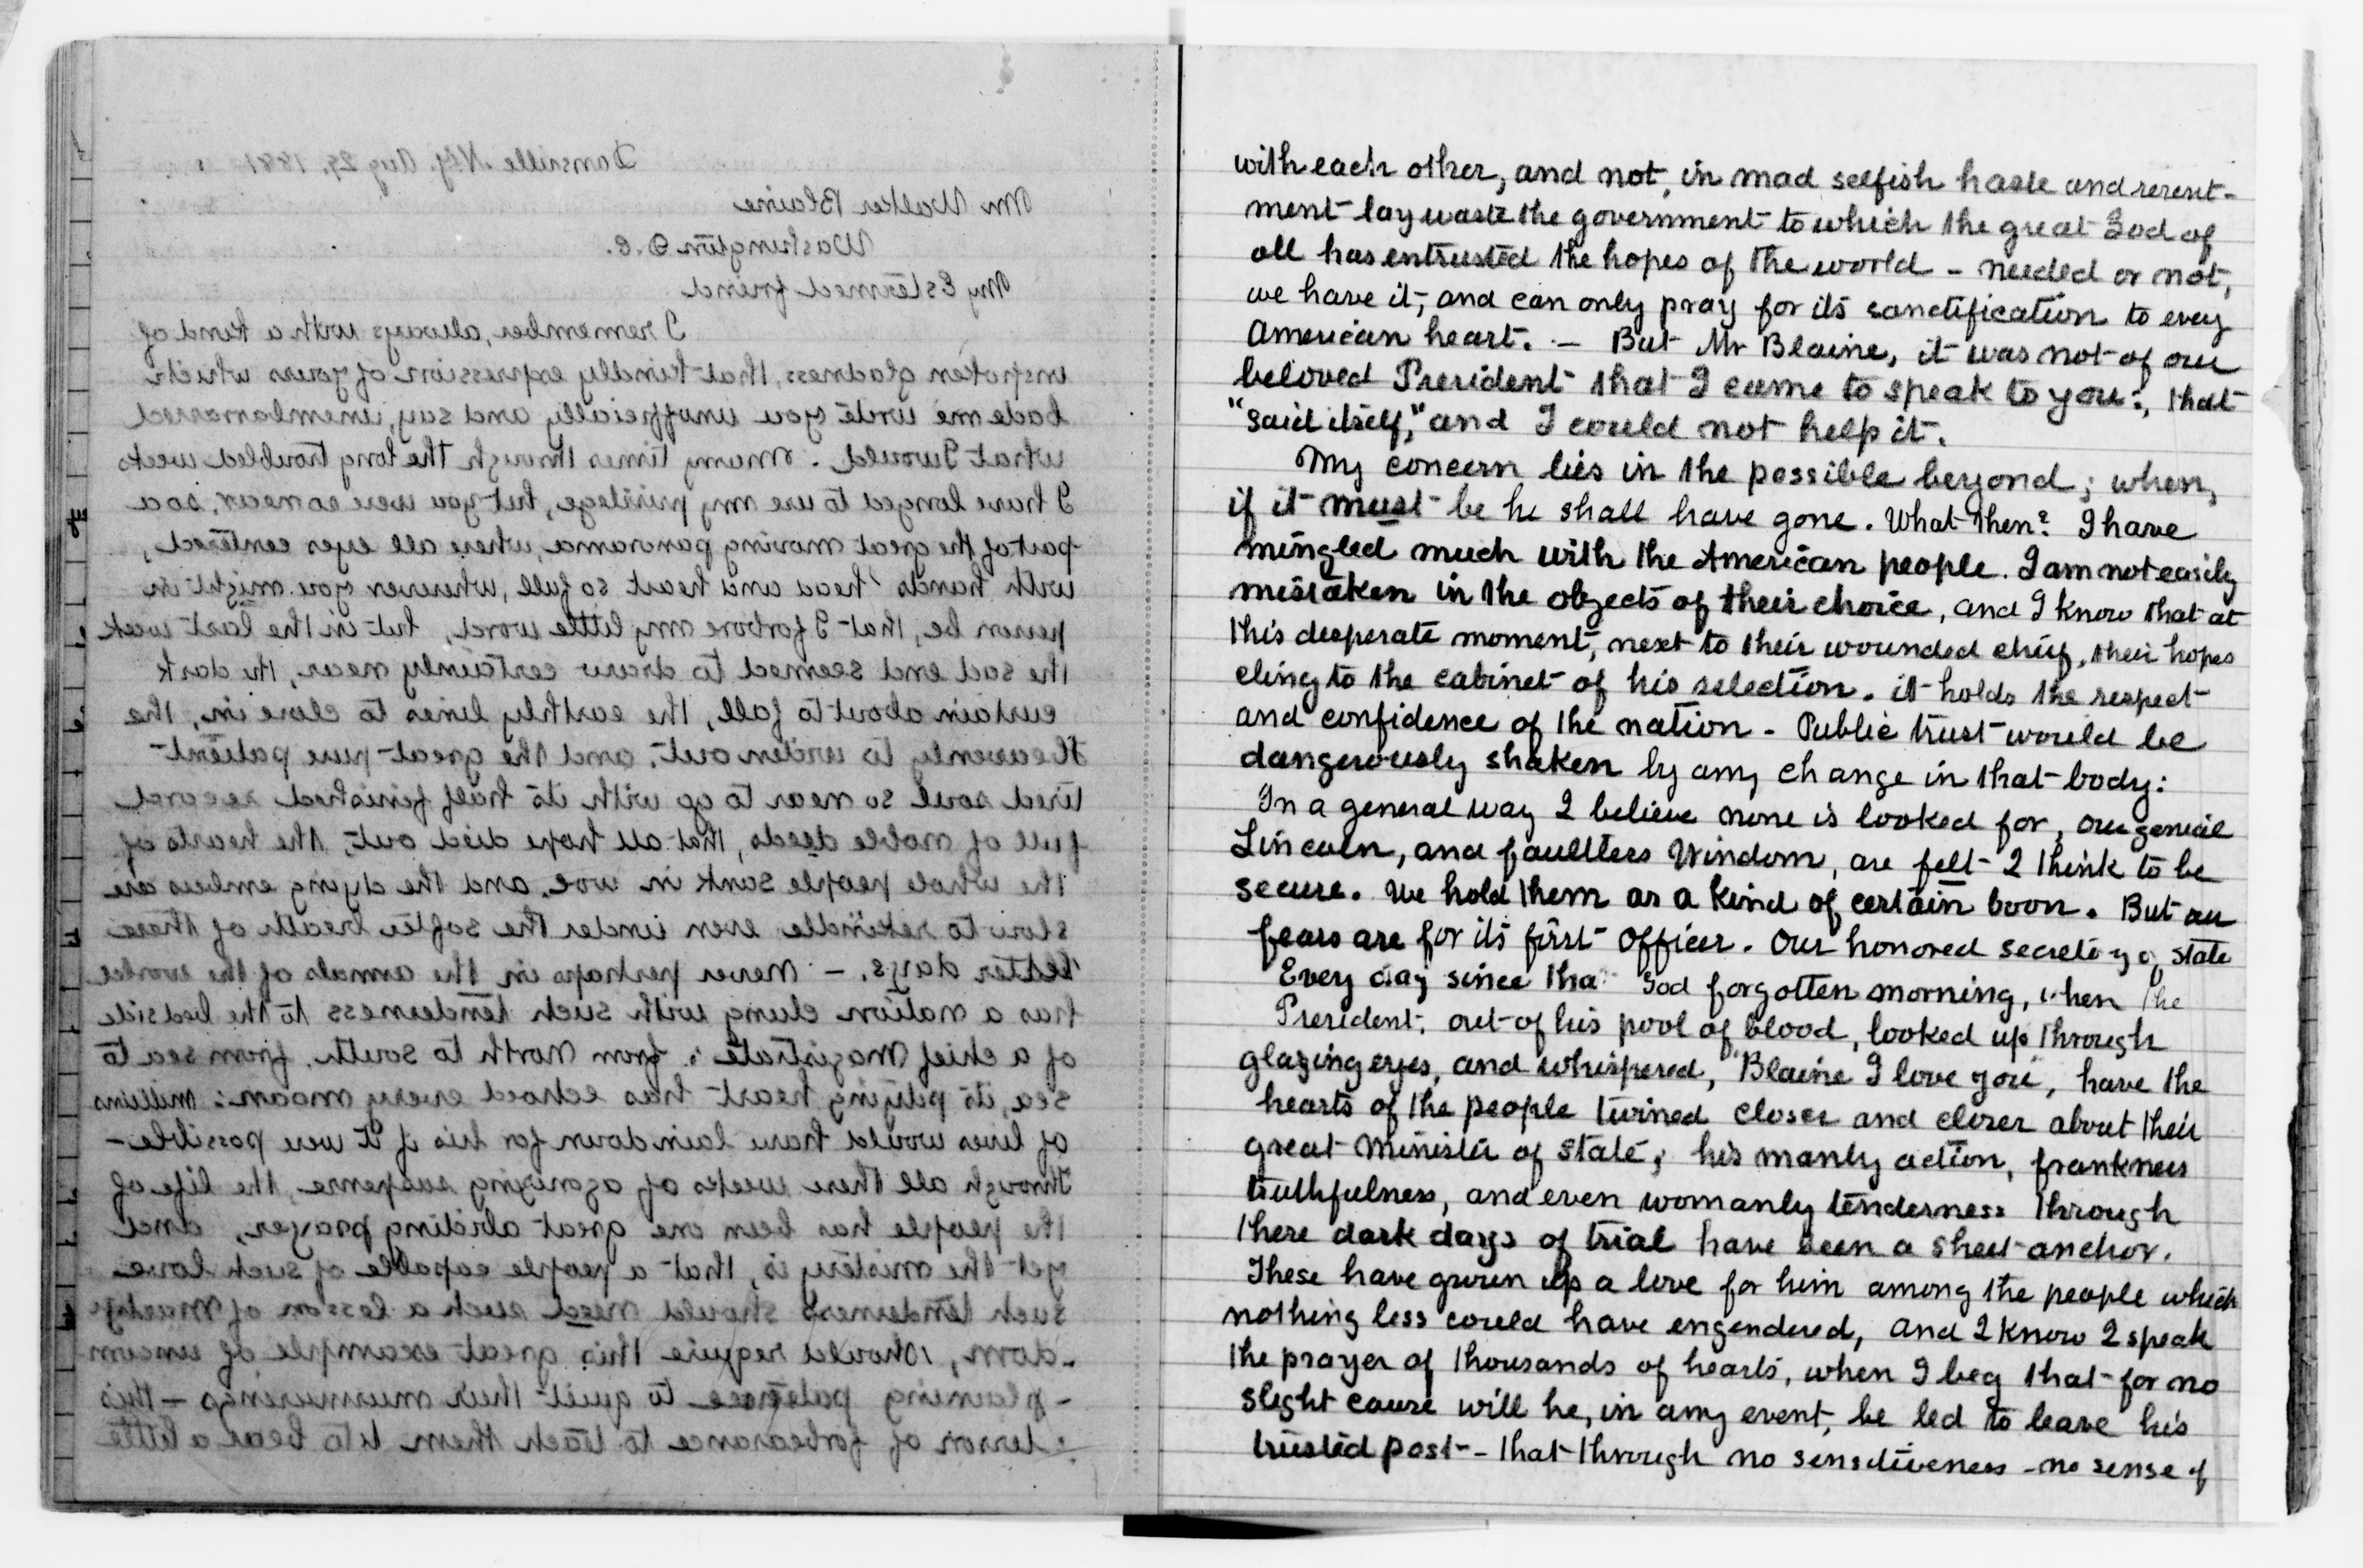 Dansville N.Y. Aug 29, 1881
Mr Walker Blaine
Washington D.C.
My Esteemed friend
I remember, always with a kind of
unspoken gladness, that kindly expression of yours which
bade me write you unofficially and say, unembarrassed
what I would. Many times through the long troubled weeks
I have longed to use my privilege, but you were so near, so a
part of the great moving panorama, where all eyes centered,
with hands head and heart so full, wherever you might in
person be, that I forbore my little word, but in the last week
the sad end seemed to draw certainly near, the dark
curtain about to fall, the earthly lines to close in, the
Heavenly to widen out, and the great pure patient
tired soul so near to go with its half finished record
full of noble deeds, that all hope died out, the hearts of
the whole people sank in woe, and the dying embers are
slow to rekindle even under the softer breath of these
better days. – Never perhaps in the annals of the world
has a nation clung with such tenderness to the bedside
of a chief Magistrate; from North to South, from sea to
sea, its pitying heart has echoed every moan: millions
of lives would have laindown for his if it were possible –
Through all these weeks of agonizing suspense, the life of
the people has been one great abiding prayer, and
yet the mistery is, that a people capable of such love
such tenderness should need such a lesson of martyr
dom, should require this great example of uncom-
-plaining patience to quiet their murmurings – this
lesson of forbearance to teach them to bear a little
with each other, and not, in mad selfish haste and resent-
ment lay waste the government to which the great God of
all has entrusted the hopes of the world – needed or not,
we have it, and can only pray for its sanctification to every
American heart. – But Mr Blaine, it was not of our
beloved President that I came to speak to you:, that
"said itself," and I could not help it.
My concern lies in the possible beyond; when,
if it must be he shall have gone. What then? I have
mingled much with the American people. I am not easily
mistaken in the objects of their choice, and I know that at
this desperate moment, next to their wounded chief, their hopes
cling to the cabinet of his selection. it holds the respect
and confidence of the nation – Public trust would be
dangerously shaken by any change in that body:
In a general way I believe none is looked for, our genial
Lincoln, and faultless Windom, are felt I think to be
secure. We hold them as a kind of certain boon. But our
fears are for its first officer. Our honored secretary of state
Every day since that God forgotten morning, when the
President, out of his pool of blood, looked up through
glazing eyes, and whispered, "Blaine I love you", have the
hearts of the people twined closer and closer about their
great Minister of State; his manly action, frankness
truthfulness, and even womanly tenderness through
these dark days of trial have been a sheet-anchor.
These have grown up a love for him among the people which
nothing less could have engendered, and I know I speak
the prayer of thousands of hearts, when I beg that for no
slight cause will he, in any event, be led to leave his
trusted post – that through no sensitiveness – no sense of